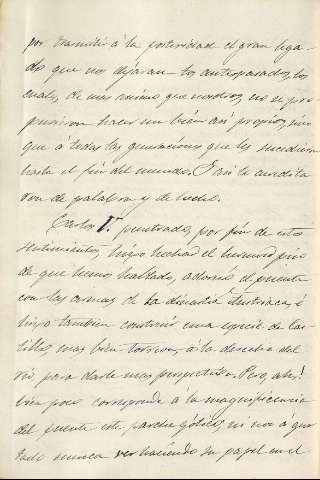 por transmitir á la posteridad el gran lega-
do que nos dejaran los antepasados, los
cuales, de mas animo que nosotros, no se pro-
pusieron hacer un bien así propios, sino
que á todas las generaciones que les sucedieran
hasta el fin del mundo. I así lo acredita
ron de palabra y de hecho.
Carlos 1º penetrado, por fin de estos
sentimientos, hizo
de que hemos hablado, adornó el puente
con las armas de la dinastía Austriaca, é
hizo tambien construir una especie de cas-
tillo, mas bien torreon, á la derecha del
rio para darle mas perspectiva. Pero, ah!
bien poco corresponde á la magnificencia
del puente este parche gótico, ni
nunca ver haciendo su papel en el